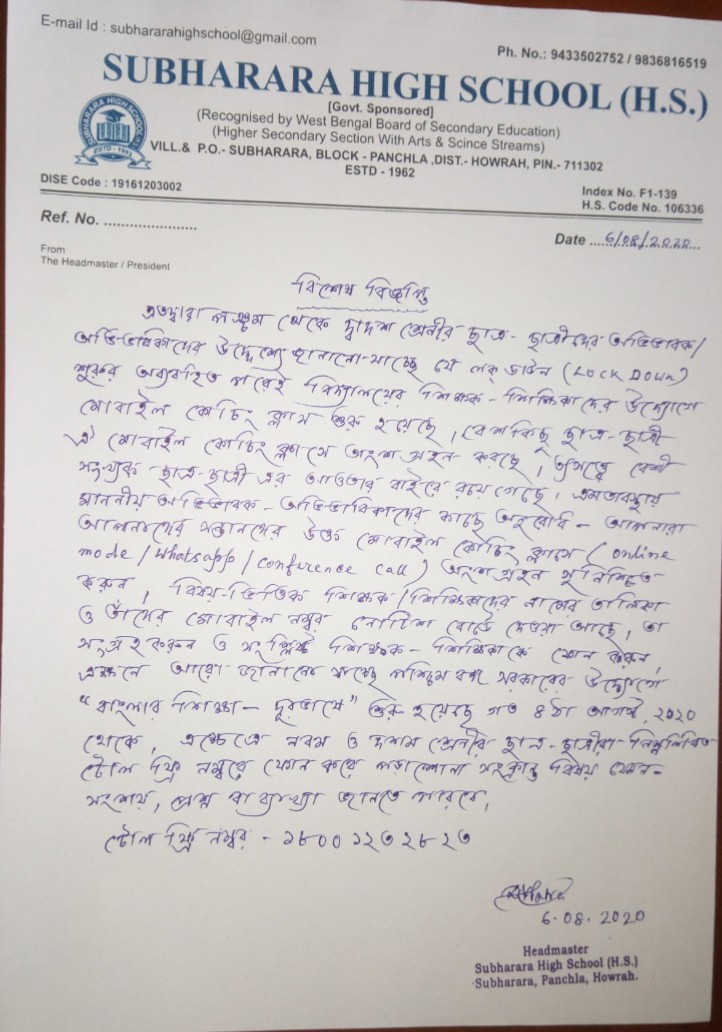 E-mail Id : subhararahighschool@gmail.com
Ph. No.: 9433502752 / 9836816519
SUBHARARA HIGH SCHOOL (H.S.)
[Govt. Sponsored]
(Recognised by West Bengal Board of Secondary Education)
(Higher Secondary Section With Arts & Scince Streams)
VILL.& P.O.- SUBHARARA, BLOCK - PANCHLA ,DIST.- HOWRAH, PIN.- 711302
ESTD - 1962
SUBHARARA HIGH SCHOOL
ESTD - 1962
DISE Code : 19161203002
Index No. F1-139
H.S. Code No. 106336
Ref. No. ........................
Date ....6/08/2020...
From
The Headmaster / President
বিশেষ বিজ্ঞপ্তি
এতদ্বারা পঞ্চম থেকে দ্বাদশ শ্রেনীর ছাত্র - ছাত্রীদের অভিভাবক/
অভিভাবিকাদের উদ্দেশ্যে জানানো যাচ্ছে যে লক্ ডাউন (LOCK DOWN)
শুরুর অব্যবহিত পরেই বিদ্যালয়ের শিক্ষক - শিক্ষিকাদের উদ্যোগে
মোবাইল কোচিং ক্লাস শুরু হয়েছে, বেশকিছু ছাত্র-ছাত্রী
ঐ মোবাইল কোচিং ক্লাসে অংশ গ্রহন করছে, তাসত্ত্বে বেশী
সংখ্যক ছাত্র-ছাত্রী এর আওতার বাইরে রয়ে গেছে। এমতাবস্থায়
মাননীয় অভিভাবক - অভিভাবিকাদের কাছে অনুরোধ - আপনারা
আপনাদের সন্তানদের উক্ত মোবাইল কোচিং ক্লাসে (online
mode / Whatsapp / conference call) অংশ গ্রহন সুনিশ্চিত
করুন, বিষয়-ভিত্তিক শিক্ষক / শিক্ষিকাদের নামের তালিকা
ও তাঁদের মোবাইল নম্বর নোটিশ বোর্ডে দেওয়া আছে, তা
সংগ্রহ করুন ও সংশ্লিষ্ট শিক্ষক - শিক্ষিকাকে ফোন করুন,
এক্ষনে আরো জানানো যাচ্ছে পশ্চিম বঙ্গ সরকারের উদ্যোগে
"বাংলার শিক্ষা - দূরভাষে" শুরু হয়েছে গত ৪ঠা আগস্ট, ২০২০
থেকে, এক্ষেত্রে নবম ও দশম শ্রেনীর ছাত্র - ছাত্রীরা নিম্নলিখিত
টোল ফ্রি নম্বরে ফোন করে পড়াশোনা সংক্রান্ত বিষয় যেমন-
সংশয়, প্রশ্ন বা ব্যাখ্যা জানতে পারবে,
টোল ফ্রি নম্বর - ১৮০০ ১২৩ ২৮২৩
6.08.2020
Headmaster
Subharara High School (H.S.)
Subharara, Panchla, Howrah.